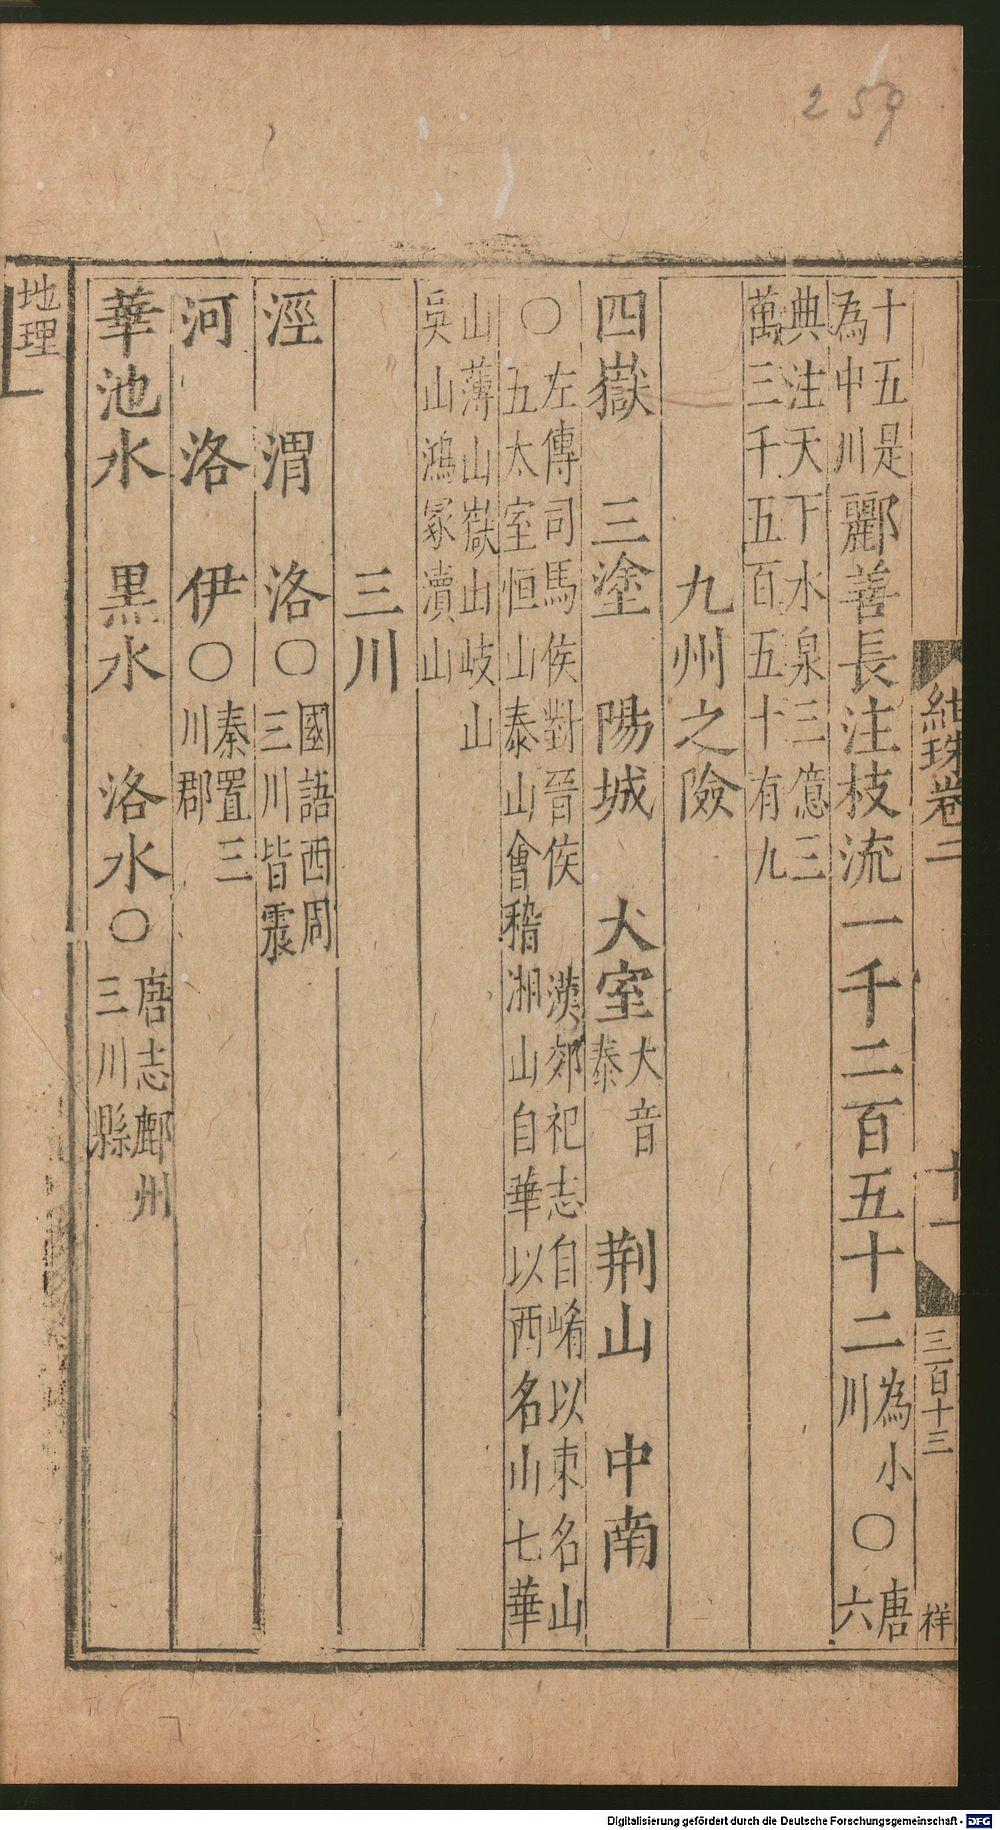 259
紺珠卷二
十一
三百十三
祥
十五是為中川酈善長注枝流一千二百五十二為小川〇唐六
典注天下水泉三億三萬三千五百五十有九
九州之險
四嶽 三塗 陽城 大室大音泰 荆山 中南
〇左傳司馬侯對晉侯 漢郊祀志自崤以東名山五太室恒山泰山會稽湘山自華以西名山七華
山薄山嶽山岐山吳山鴻冢瀆山
三川
涇 渭 洛〇國語西周三川皆震
河 洛 伊〇秦置三川郡
華池水 黒水 洛水〇唐志鄜州三川縣
地理
Digitalisierung gefördert durch die Deutsche Forschungsgemeinschaft - DFG